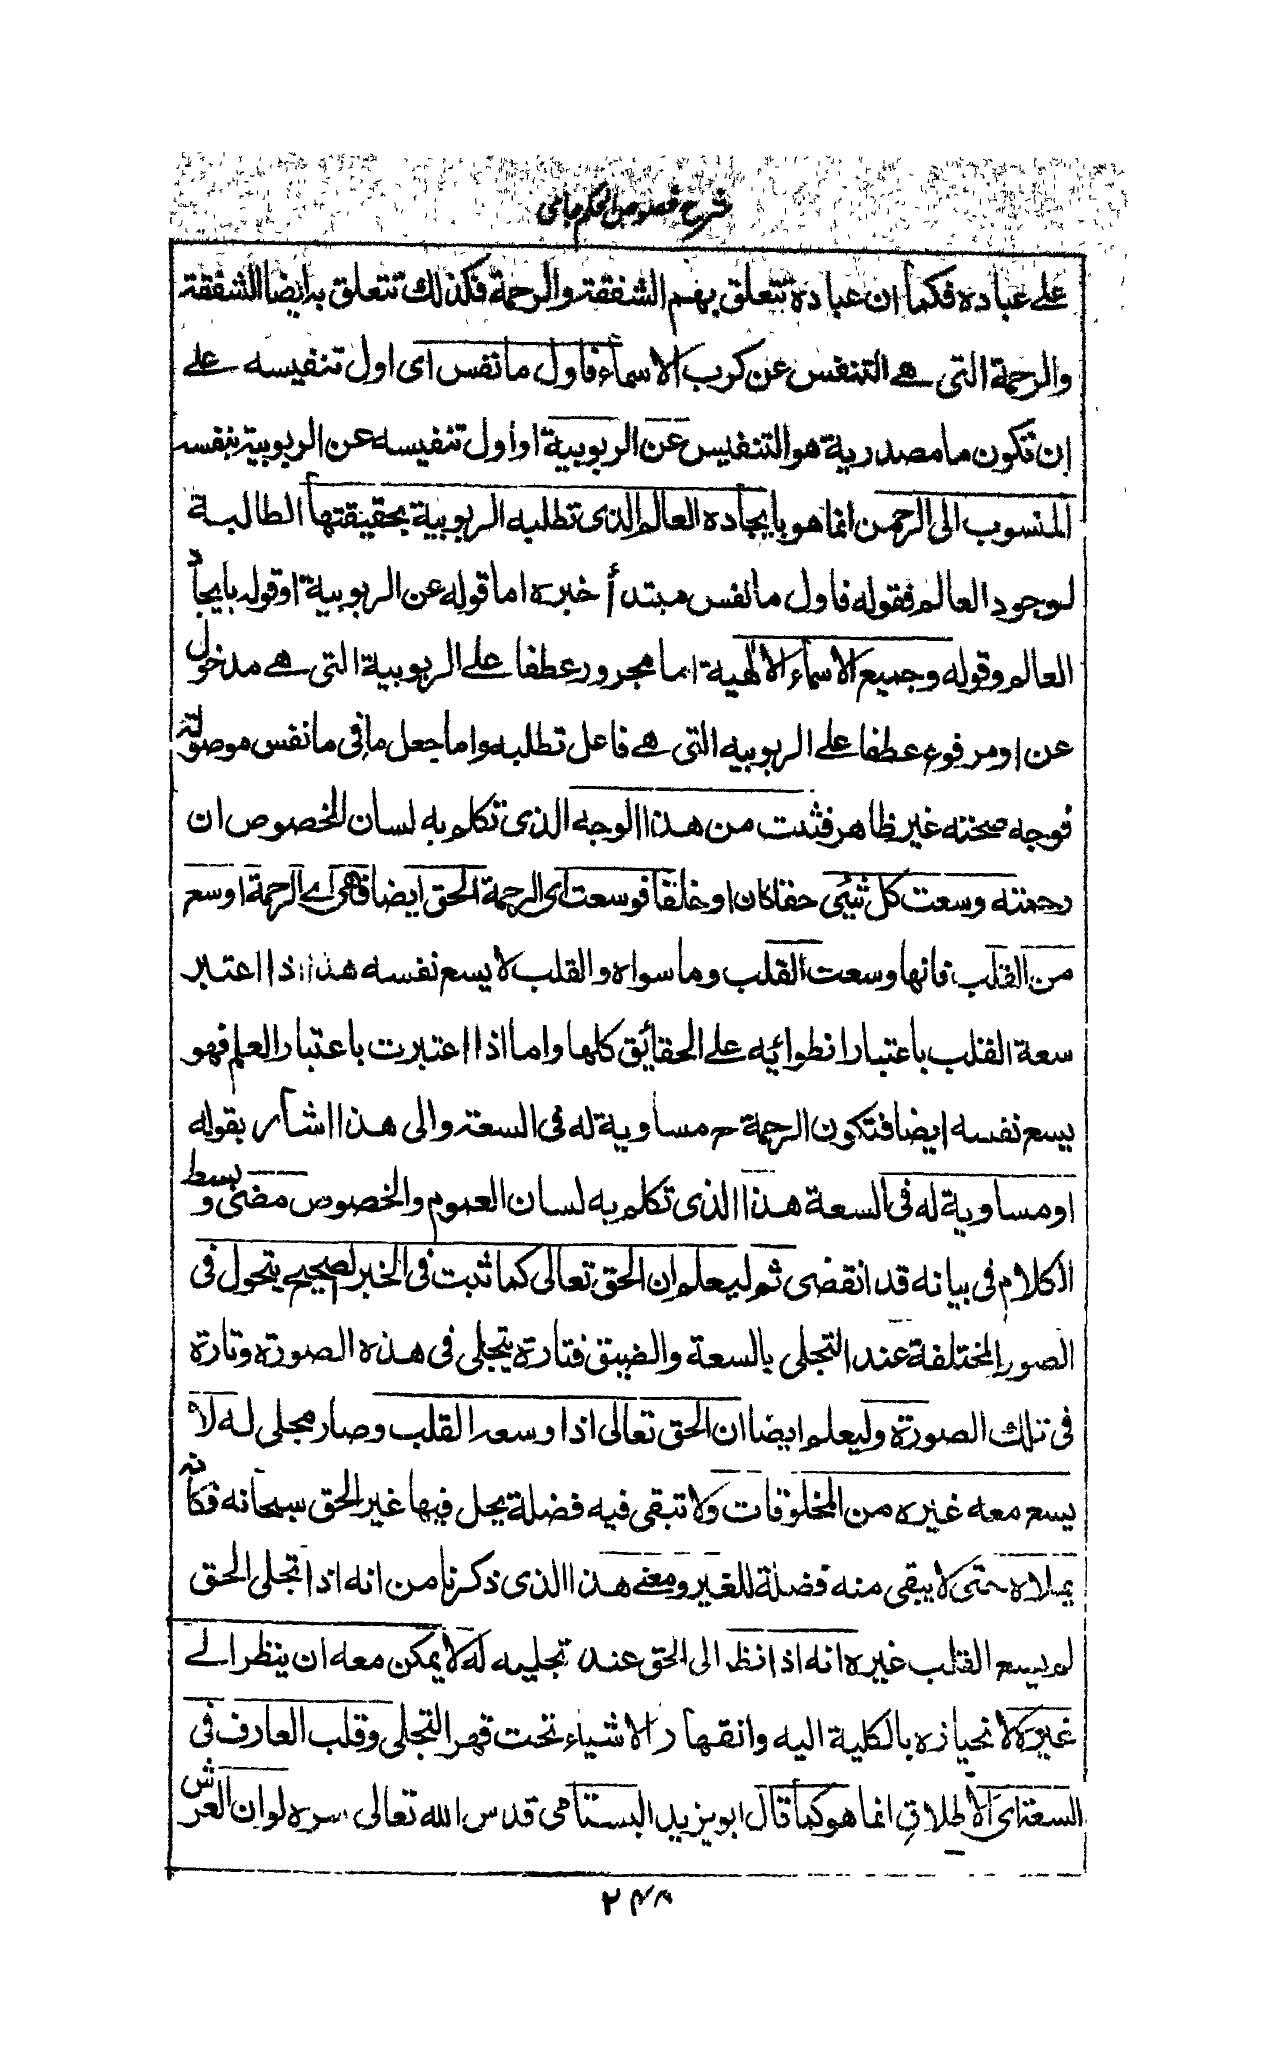 شرح فصوص الحكم جامى
على عباده فكما ان عباده تتعلق بهم الشفقة والرحمة فكذلك تتعلق به ايضا الشفقة
والرحمة التى هے التنفس عن كرب الاسماء فاول ما نفس اى اول تنفيسه على
ان تكون ما مصدرية هو التنفيس عن الربوبية او اول تنفيسه عن الربوبية بنفسه
المنسوب الى الرحمن انما هو بايجاده العالم الذى تطلبه الربوبية بحقيقتها الطالبة
لوجود العالم فقوله فاول ما نفس مبتدأ خبره اما قوله عن الربوبية او قوله بايجاد
العالم وقوله وجميع الاسماء الالهية اما مجرور عطفا على الربوبية التى هے مدخول
عن او مرفوع عطفا على الربوبيه التى هے فاعل تطلبه واما جعل ما فى ما نفس موصولة
فوجه صحته غير ظاهر فثبت من هذا الوجه الذى تكلم به لسان الخصوص ان
رحمته وسعت كل شيئ حقا كان او خلقا فوسعت اى الرحمة الحق ايضا فهى اے الرحمة اوسع
من القلب فانها وسعت القلب وما سواه والقلب لا يسع نفسه هذا اذا اعتبر
سعة القلب باعتبار انطوائيه على الحقائق كلها واما اذا اعتبرت باعتبار العلم فهو
يسع نفسه ايضا فتكون الرحمة ح مساوية له فى السعة والى هذا اشار بقوله
او مساوية له فى السعة هذا الذى تكلم به لسان العموم والخصوص مضى وبسط
الكلام فى بيانه قد انقضى ثم ليعلم ان الحق تعالى كما ثبت فى الخبر الصحيح يتحول فى
الصور المختلفة عند التجلى بالسعة والضيق فتارة يتجلى فى هذه الصورة وتارة
فى تلك الصورة وليعلم ايضا ان الحق تعالى اذا وسعه القلب وصار مجلى له لا
يسع معه غيره من المخلوقات ولا تبقى فيه فضلة يحل فيها غير الحق سبحانه فكأنه
يملاه حتى لا يبقى منه فضلة للغير ومعنے هذا الذى ذكرنا من انه اذا تجلى الحق
لم يسع القلب غيره انه اذا نظر الى الحق عند تجليه له لا يمكن معه ان ينظر الے
غيره لانحيازه بالكلية اليه وانقهار الاشياء تحت قهر التجلى وقلب العارف فى
السعة اى الاطلاق انما هو كما قال ابو يزيد البستامى قدس الله تعالى سره لو ان العرش
٢٤٨